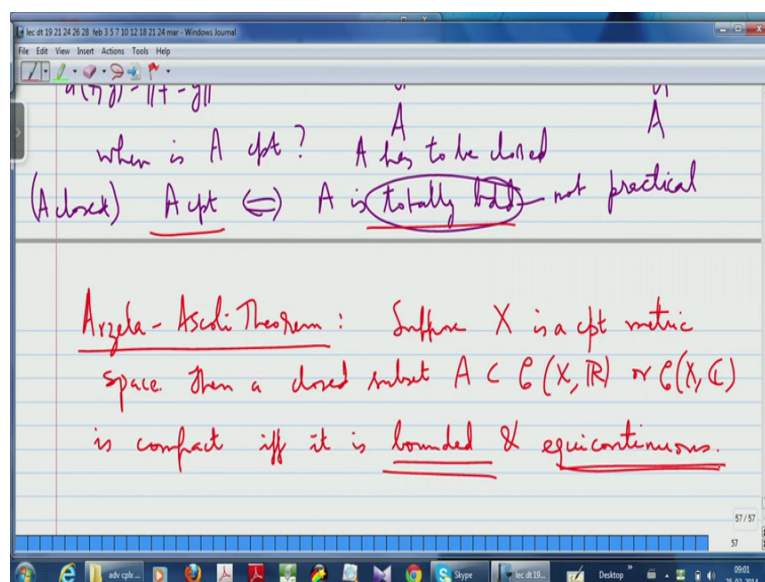 lec dt 19 21 24 26 28 feb 3 5 7 10 12 18 21 24 mar - Windows Journal
File Edit View Insert Actions Tools Help
d(f,g) = ||f - g||
A A
when is A cpt? A has to be closed
(A closed) A cpt ⇔ A is totally bdd - not practical
Arzela - Ascoli Theorem : Suppose X is a cpt metric
space. Then a closed subset A ⊂ C(X, ℝ) or C(X, ℂ)
is compact iff it is bounded & equicontinuous.
57/57
57
adv cplx ... Skype lec dt 19... Desktop » 09:01